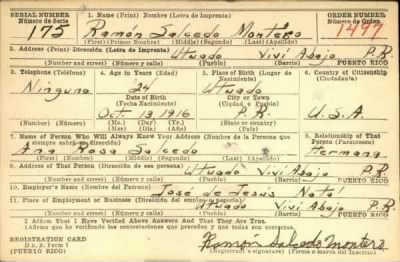 SERIAL NUMBER 1. Name (Print) Nombre (Letra de Imprenta) ORDER NUMBER
Número de Serie Número de Orden
175 Ramon Salcedo Montero 1497
(First) (Primer Nombre) (Middle) (Segundo) (Last) (Apellido)
2. Address (Print) Dirección (Letra de Imprenta)
Utuado Vivi Abajo P.R.
(Number and street) (Número y calle) (Pueblo) (Barrio) PUERTO RICO
3. Telephone (Teléfono) 4. Age in Years (Edad) 5. Place of Birth (Lugar de Nacimiento) 6. Country of Citizenship (Ciudadanía)
Ninguno 24 Utuado
Date of Birth City or Town
(Fecha Nacimiento) (Ciudad o Pueblo)
Oct. 13, 1916 P.R. U.S.A.
(Number) (Número) (Mo.) (Day) (Yr.) State or country
(Mes) (Día) (Año) (Estado o país)
7. Name of Person Who Will Always Know Your Address (Nombre de la Persona que siempre sabrá dirección) 8. Relationship of That Person (Parentesco)
Ana Rosa Salcedo Hermana
(First) (Primero) (Middle) (Segundo) (Last) (Apellido)
9. Address of That Person (Dirección de esa persona)
Utuado Vivi Abajo P.R.
(Number and street) (Número y calle) (Pueblo) (Barrio) PUERTO RICO
10. Employer's Name (Nombre del Patrono)
José de Jesus
11. Place of Employment or Business (Dirección del empleo o negocio)
Utuado Vivi Abajo P.R.
(Number and street) (Número y calle) (Pueblo) (Barrio) PUERTO RICO
I Affirm That I Have Verified Above Answers And That They Are True.
(Afirmo que he verificado las contestaciones que preceden y que todas son correctas).
REGISTRATION CARD
D. S. Form 1
(PUERTO RICO)
Ramon Salcedo Montero
(Registrant's signature) (Firma o marca del Inscrito)